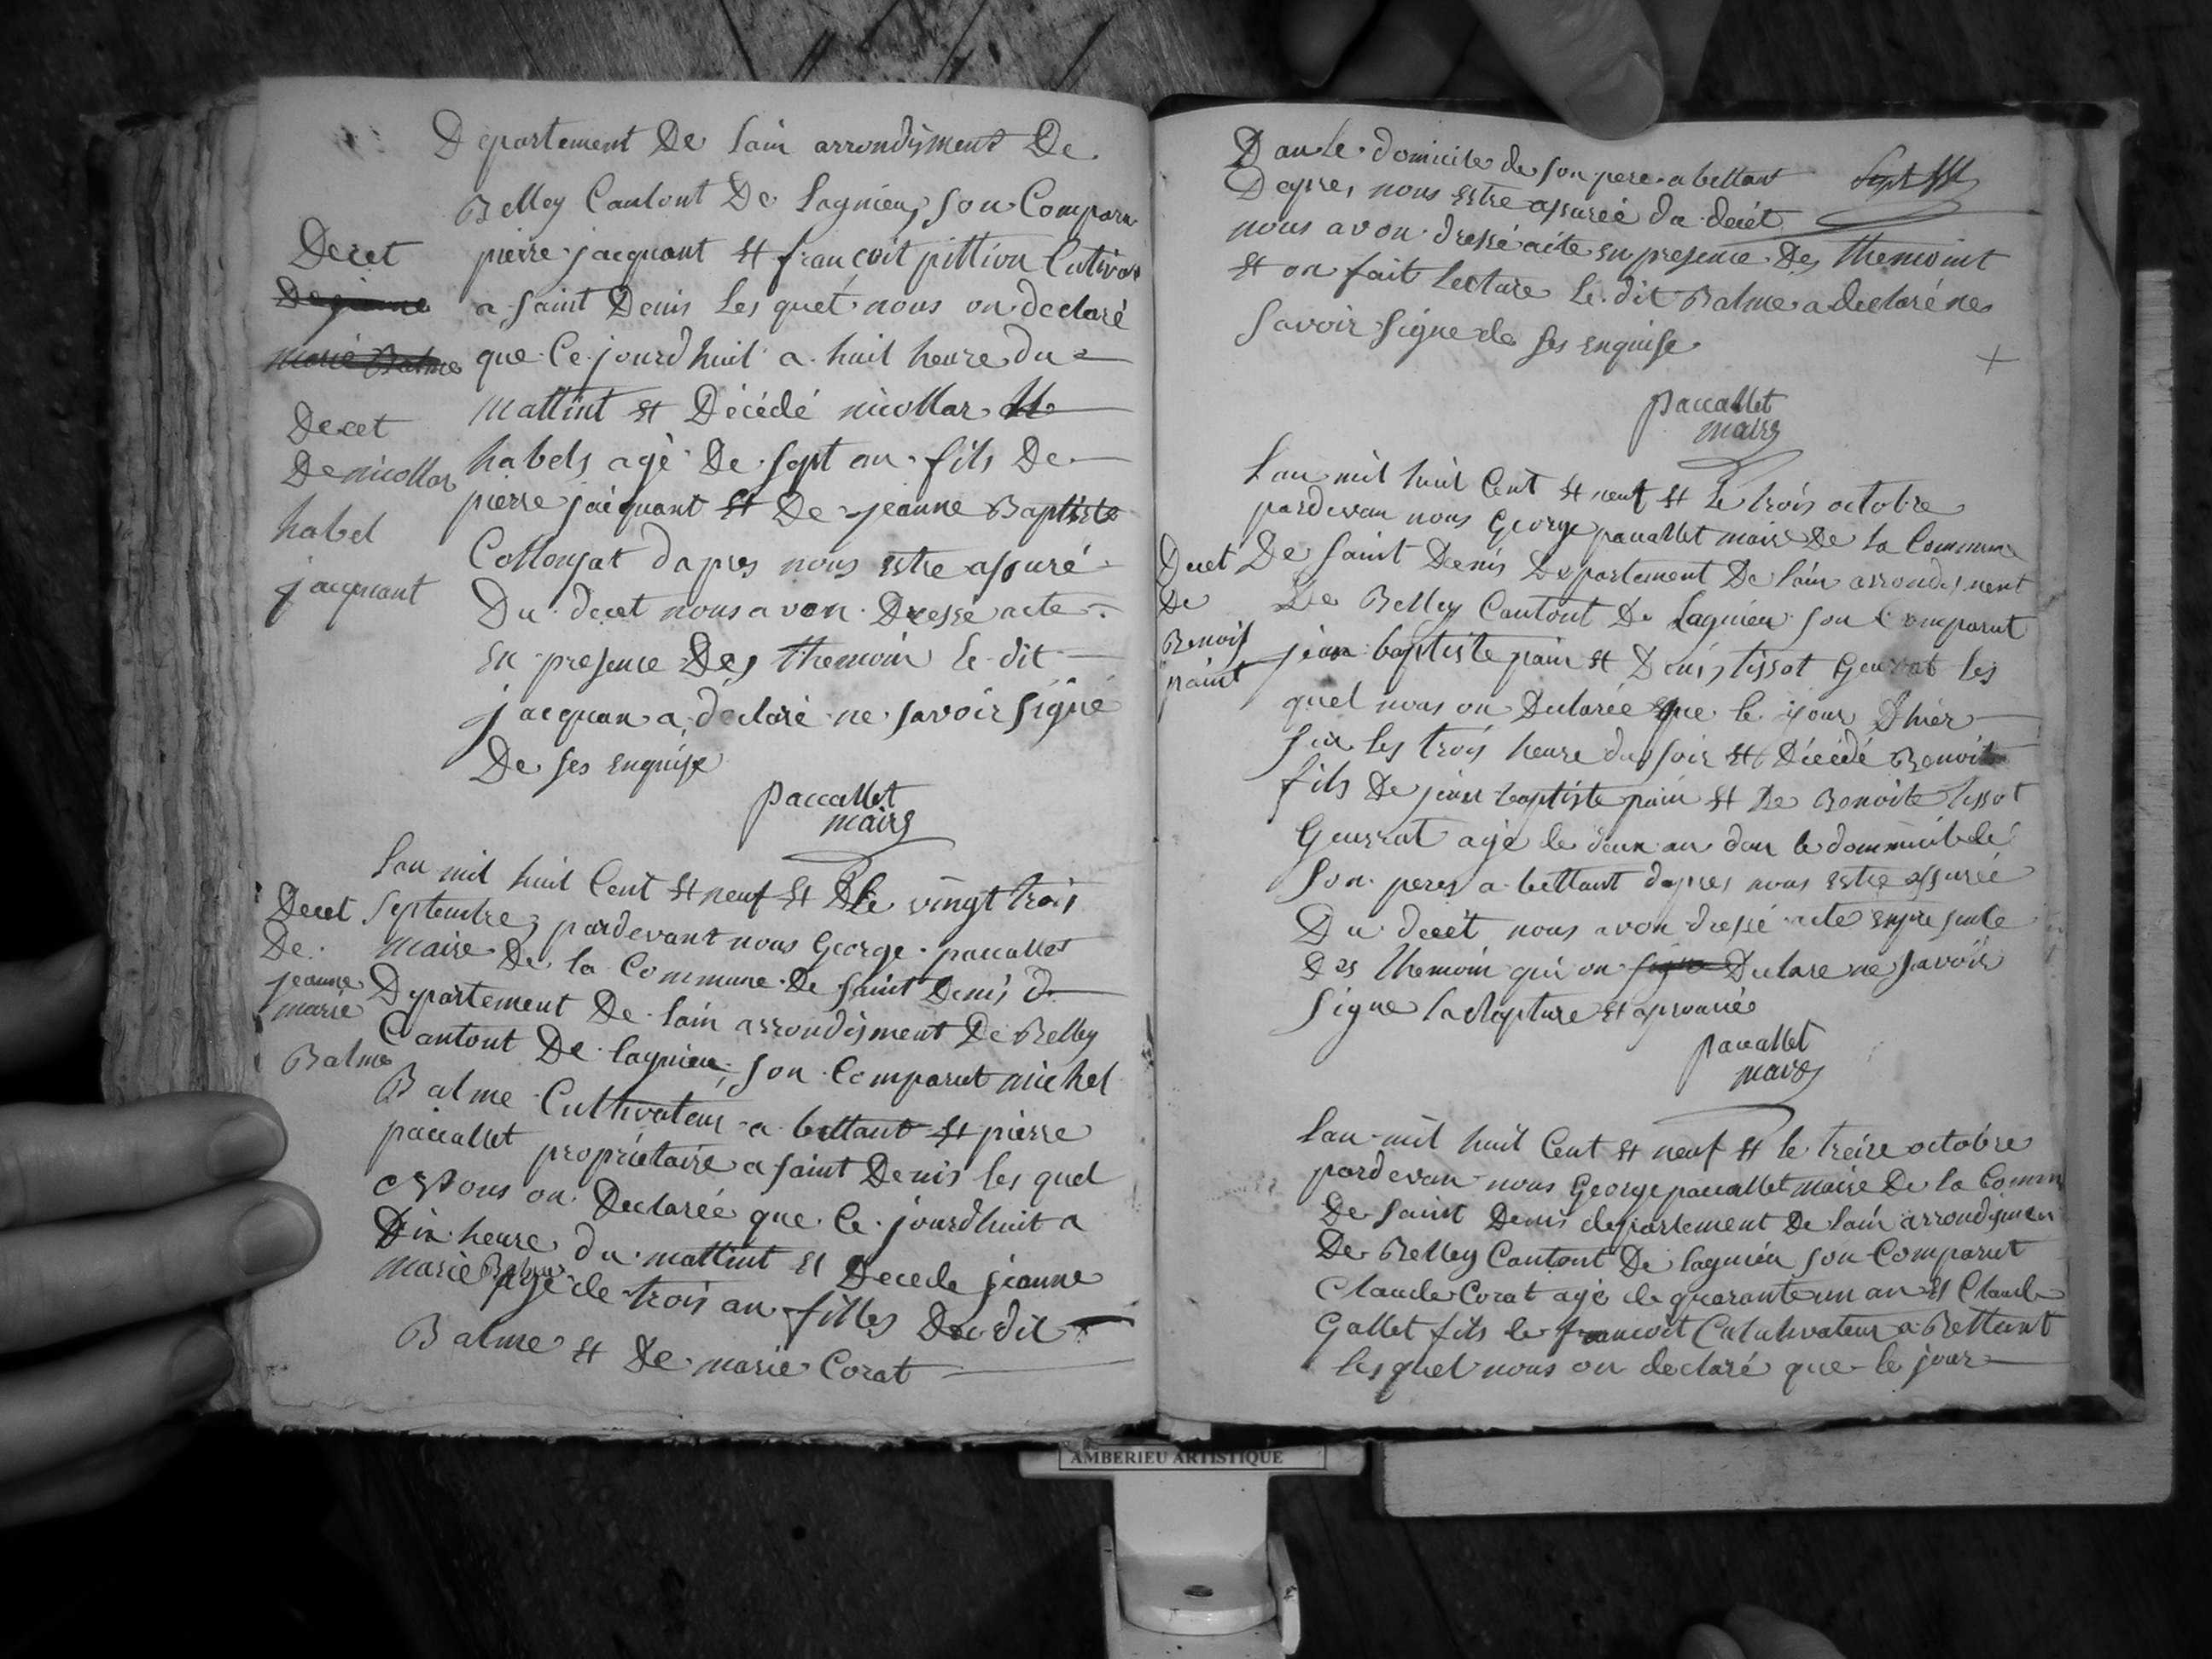 Departement De lain arrondisment De
Belley Cantont De Lagnieu, son Comparu
pierre jacquant et francoit pittion Cutivar
a saint Denis Les quet nous on declaré
que Ce jourdhuit a huit heure du
mattint et Décédé nicollar
habels agé De sept an fils De
pierre jaiquant et De jeanne Baptiste
Collonjat dapres nous estre assuré
Du decet nous avon Dressé acte
en presence Des themoin le dit
jacquan a déclaré ne savoir signé
De ses enquise
Decet
De jeanne
marie Balme
Decet
De nicollar
habel
jacquant
paccallet
maire
Lan mil huit Cent et neuf et Le vingt trois
Septembre, pardevant nous George paccallet
maire De la Commune De saint Denis d
Departement De lain arrondisment De Belley
Cantont De lagnieu, son Comparut michel
Balme Cultivateur a bettant et pierre
paccallet propriétaire a saint Denis les quel
nous on Declarée que Ce jourdhuit a
Dix heure du mattint et Decede jeanne
marie Balme agé de trois an filles Du dit
Balme et De marie Corat
Decet
De
jeanne
marie
Balme
Dan le domicile de son pere a bettant
Dapres nous estre assureé du decét
nous avon dressé acte en presence Des themoint
et on fait lecture le dit Balme a declaré nes
savoir signe de ses enquise
paccallet
maire
Lan mil huit Cent et neuf et Le trois octobre
pardevan nous George paccallet maire De la Commune
De saint Denis Departement De lain arrondisment
De Belley Cantont De Lagnieu son Comparut
jean baptiste pain et Denis tissot Geurrat les
quel nous on Declarée que le jour Dhier
sur les trois heure du soir et Décédé Benoit
fils De jean baptiste pain et De Benoite tissot
Geurrat agé de deux an dan le dommicile de
son peres a bettant dapres nous estre assurée
Du decét nous avon dressé acte en presente
Des themoin qui on signe Declare ne savoir
signe la Rapture et aprouvée
Decet
De
Benoit
paint
paccallet
maire
Lan mil huit Cent et neuf et le treize octobre
pardevan nous George paccallet maire De la Comm
De saint Denis departement De lain arrondismen
De Belley Cantont De lagnieu son Comparut
Claude Corat agé de quarante un an et Claude
Gallet fils de francoit Culutivateur a Bettant
les quel nous on declaré que le jour
AMBERIEU ARTISTIQUE